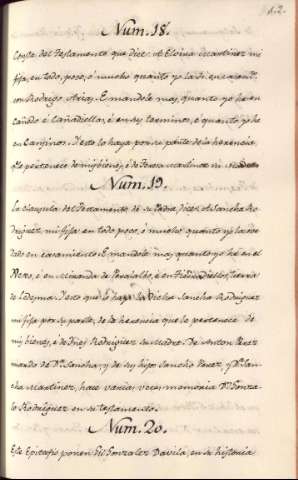 62.
Num. 18.
Copia del Testamento que dice: A Elvira Martinez mi
fija, en todo, poco, ó mucho quanto yo la di en casami.to
con Rodrigo Arias. E mandole mas, quanto yo hé en
Cañedo é Cañadiella, é en sus terminos, é quanto yo hé
en Carpinos. Y esto lo haya por su parte de la herencia,
q.e le pertenece de mis bienes, é de Teresa Martinez mi
Num. 19.
La clausula del Testamento de su Padre, dice: A Sancha Ro-
driguez mi fija en todo poco, ó mucho, quanto yo la ove
dado en casamiento. E mandole mas quanto yo hé en el
Pero, é en Miranda de é en tierra
de Ledesma. Y esto que lo haya la dicha Sancha Rodriguez
mi fija por su parte, de la herencia que le pertenece de
mis bienes, é de Ines Rodriguez su Madre. De Anton Perez
marido de D.a Sancha, y de su hijo Sancho Perez, y D.a San
cha Martinez, hace varias veces memoria D.n Gonza-
lo Rodriguez en su testamento.
Num. 20.
Este Epitafio ponen Gil Gonzalez Davila, en su historia